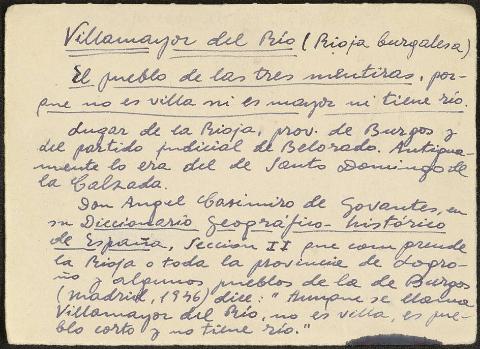 Villamayor del Río (Rioja burgalesa)
El pueblo de las tres mentiras, por-
que no es villa ni es mayor ni tiene río.
Lugar de la Rioja, prov. de Burgos y
del partido judicial de Belorado. Antigua-
mente lo era del de Santo Domingo de
la Calzada.
Don Angel Casimiro de Govantes, en
su Diccionario geográfico-histórico
de España, Sección II que comprende
la Rioja o toda la provincia de Logro-
ño y algunos pueblos de la de Burgos
(Madrid, 1946) dice: "Aunque se llama
Villamayor del Río, no es villa, es pue-
blo corto y no tiene río."